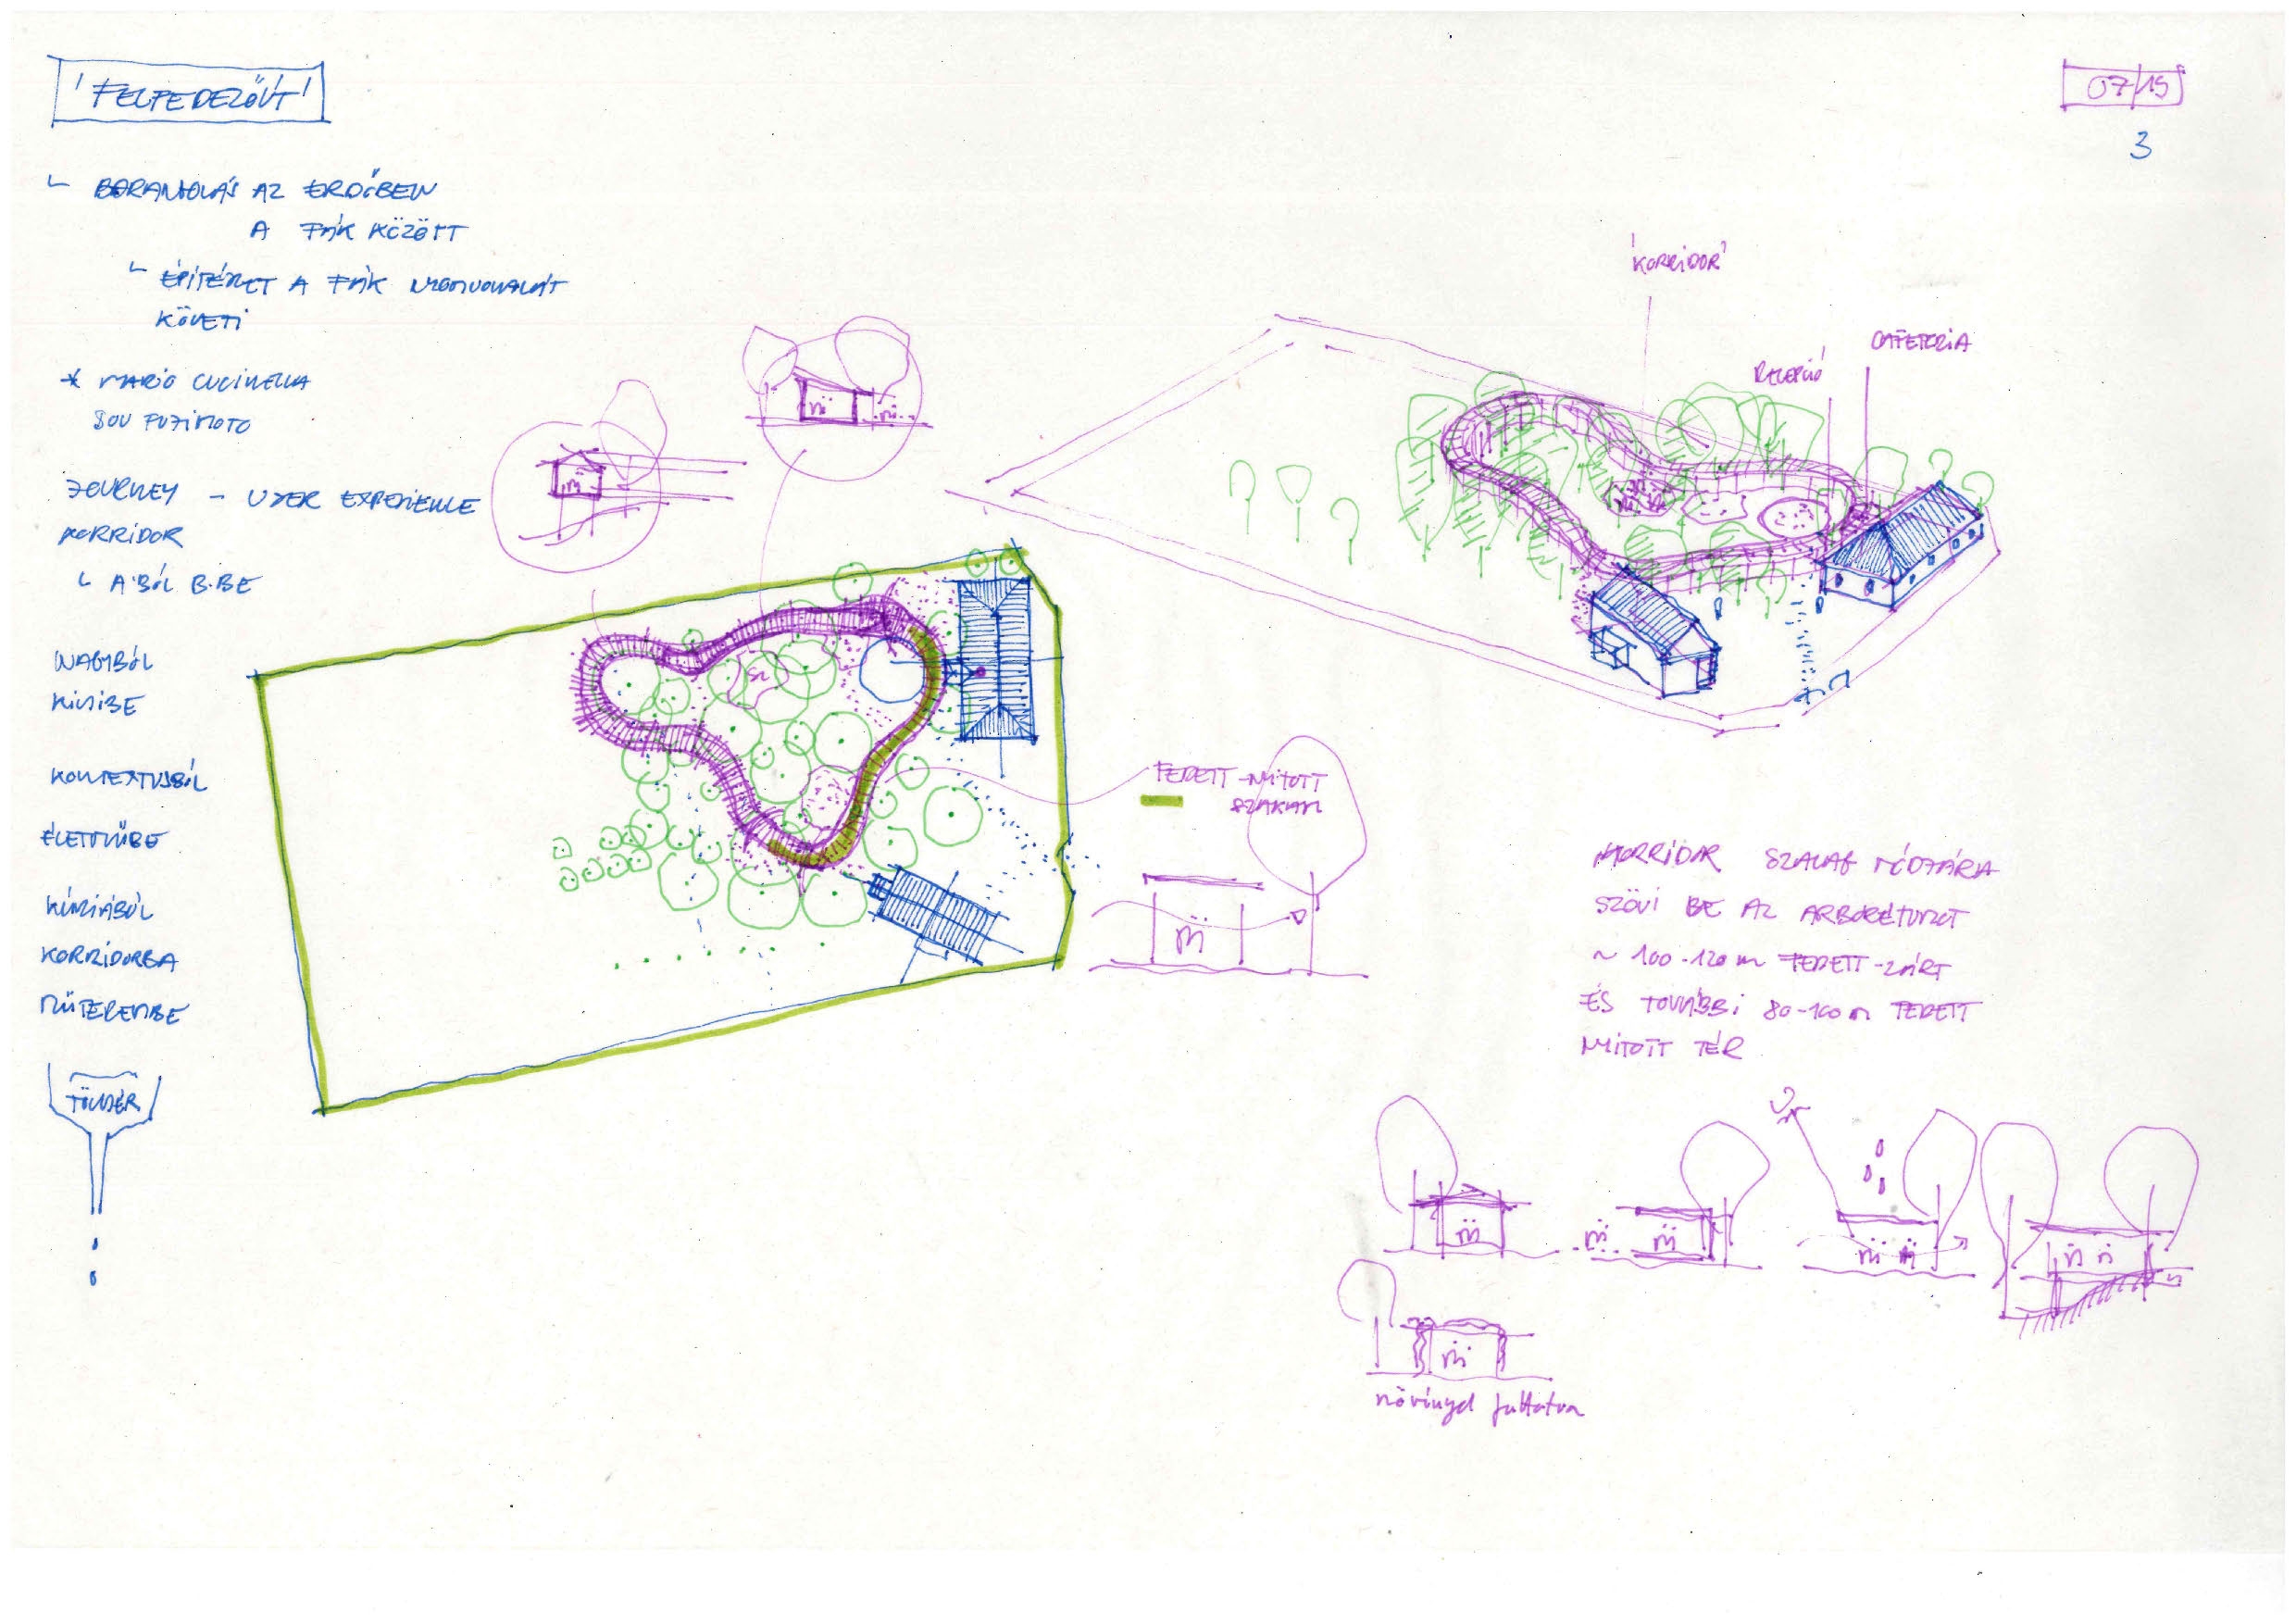 'FELFEDEZŐÚT'
07/15
3
BARANGOLÁS AZ ERDŐBEN
A FÁK KÖZÖTT
ÉPÍTÉSZET A FÁK NYOMVONALÁT
KÖVETI
* MARIO CUCINELLA
SOU FUJIMOTO
JOURNEY - USER EXPERIENCE
KORRIDOR
A-BÓL B-BE
NAGYBÓL
KICSIBE
KONTEXTUSBÓL
ÉLETMŰBE
KÚRIÁBÓL
KORRIDORBA
MŰTEREMBE
TÖLCSÉR
'KORRIDOR'
CAFETERIA
RECEPCIÓ
FEDETT-NYITOTT
SZAKASZ
KORRIDOR SZALAG MÓDJÁRA
SZÖVI BE AZ ARBORÉTUMOT
~ 100-120 m FEDETT-ZÁRT
ÉS TOVÁBBI 80-100 m FEDETT
NYITOTT TÉR
növénnyel futtatva